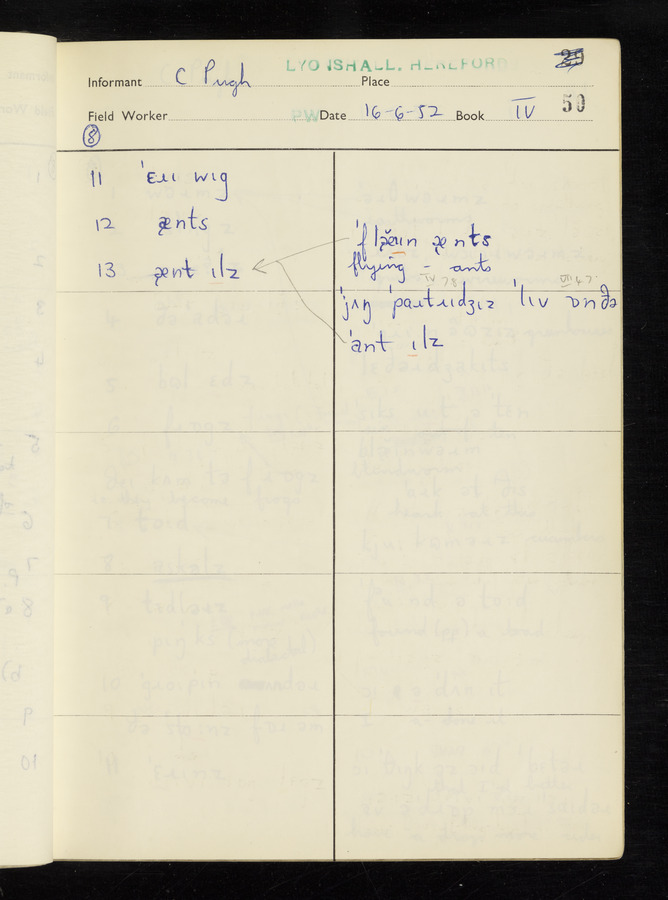 LYONSHALL, HEREFORD
29
Informant C Pugh Place
Field Worker PW Date 16-6-52 Book IV 50
8
11 ˈɛɹɪ wɪg
12 ænts
13 ænt ɪlz
flying - ants
IV 7 8
VII 4 7.
ˈjɪŋ ˈpaɹtɹɪdʒɪz ˈlɪv ɒnðə
ˈant ɪlz